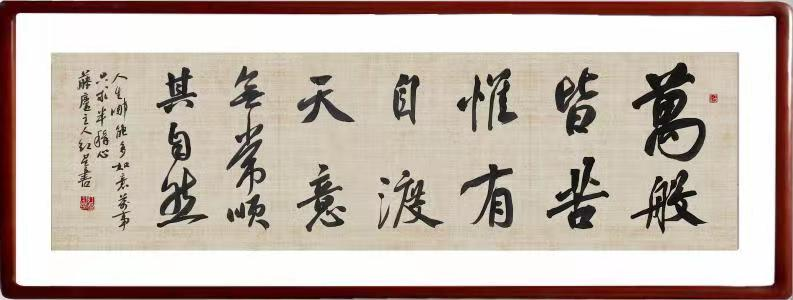 萬般
皆苦
惟有
自渡
天意
無常順
其自然
人生哪能多如意萬事
只求半稱心
主人紅星書